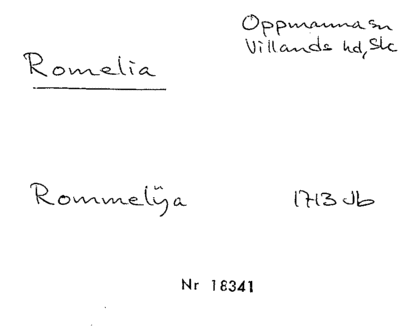 Oppmanna sn
Villands hd, Sk
Romelia
Rommelÿa 1713 Jb
Nr 18341